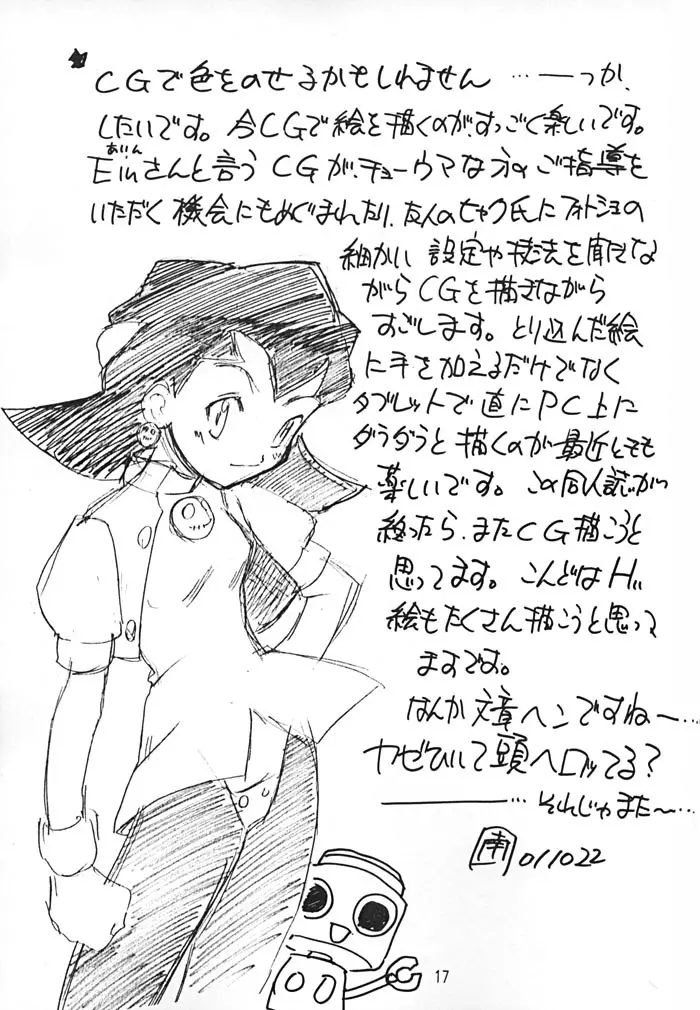 CGで色をのせるかもしれません …―っか、
したいです。今CGで絵を描くのが、すっごく楽しいです。
あいん
Einさんと言う CGが、チョーウマな方のご指導を
いただく機会にもめぐまれたり、友人のセャク氏にフォトショの
細かい 設定や技法を聞きな
がらCGを描きながら
すごします。とり込んだ絵
に手を加えるだけでなく
タブレットで直にPC上に
ダラダラと描くのが最近とても
楽しいです。この同人誌が
終ったら、またCG描こうと
思ってます。こんどはH
絵もたくさん描こうと思って
ますです。
なんか文章ヘンですねー…
カゼひいて頭ヘロってる?
―…それじゃまた〜…
南 011022
17